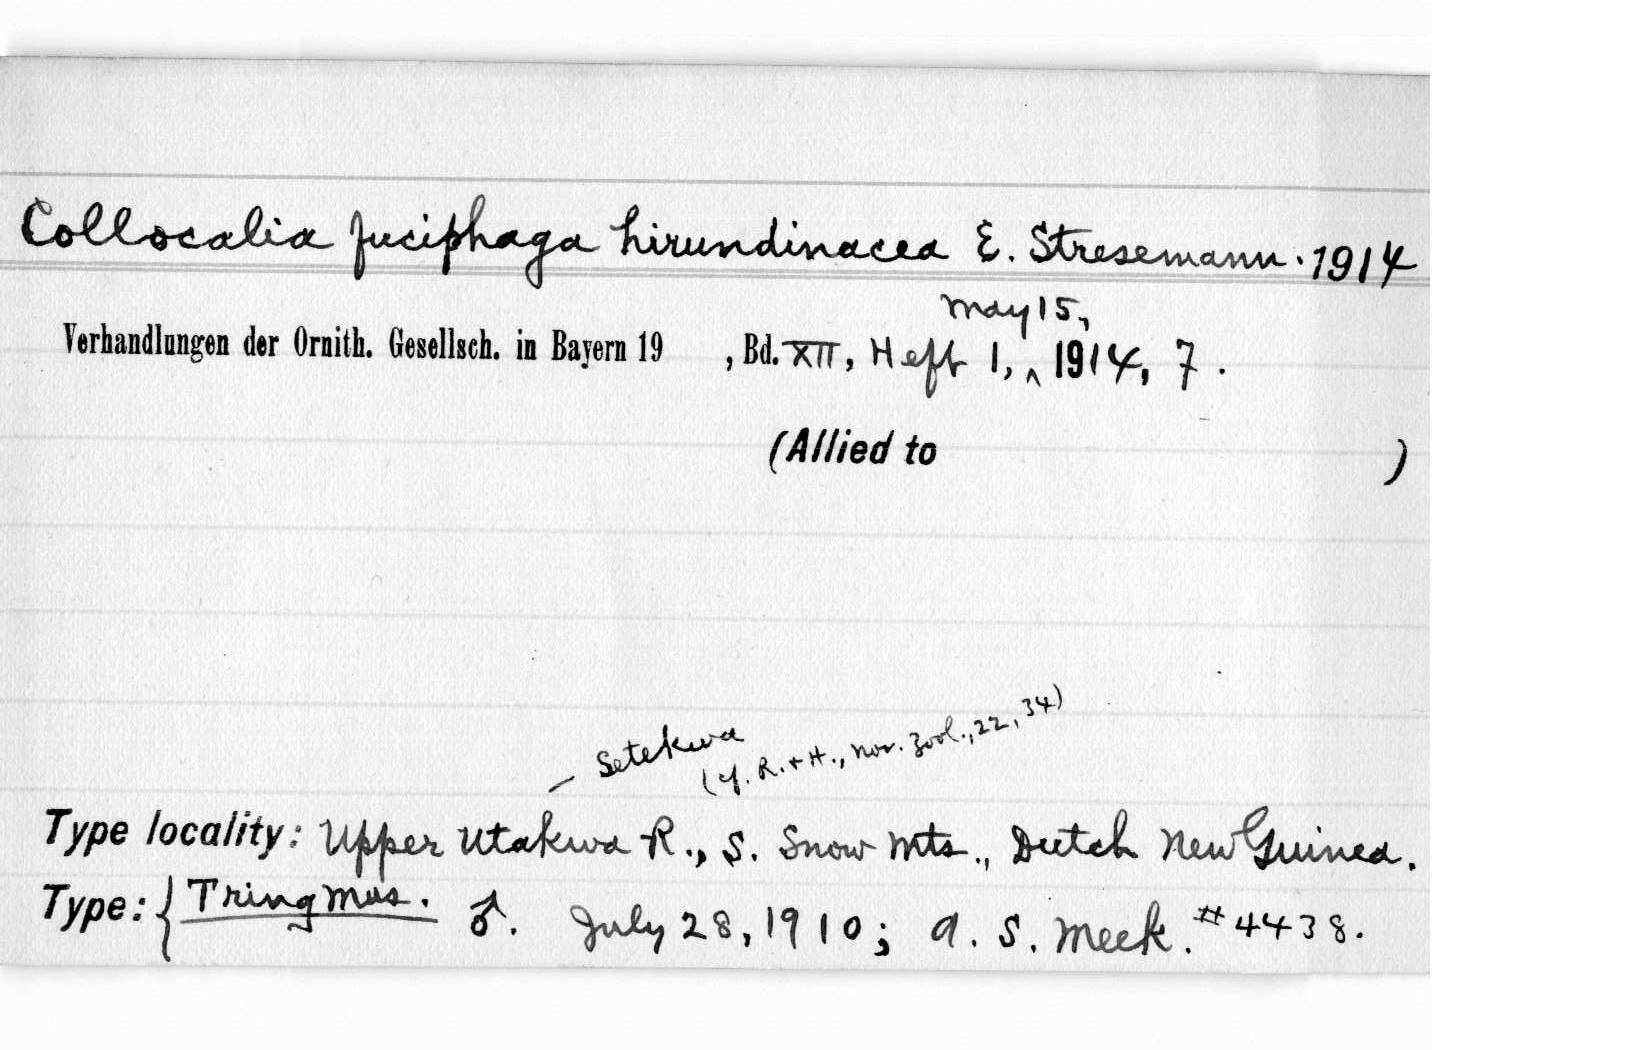 Collocalia fuciphaga hirundinacea E. Stresemann. 1914
May 15,
Verhandlungen der Ornith. Gesellsch. in Bayern 19 , Bd. XII, Heft 1, ^ 1914, 7.
(Allied to )
— Setekwa
(cf. R. + H., Nov. Zool., 22, 34)
Type locality: Upper Utakwa R., S. Snow Mts., Dutch New Guinea.
Type: { Tring Mus. ♂. July 28, 1910; A. S. Meek. #4438.